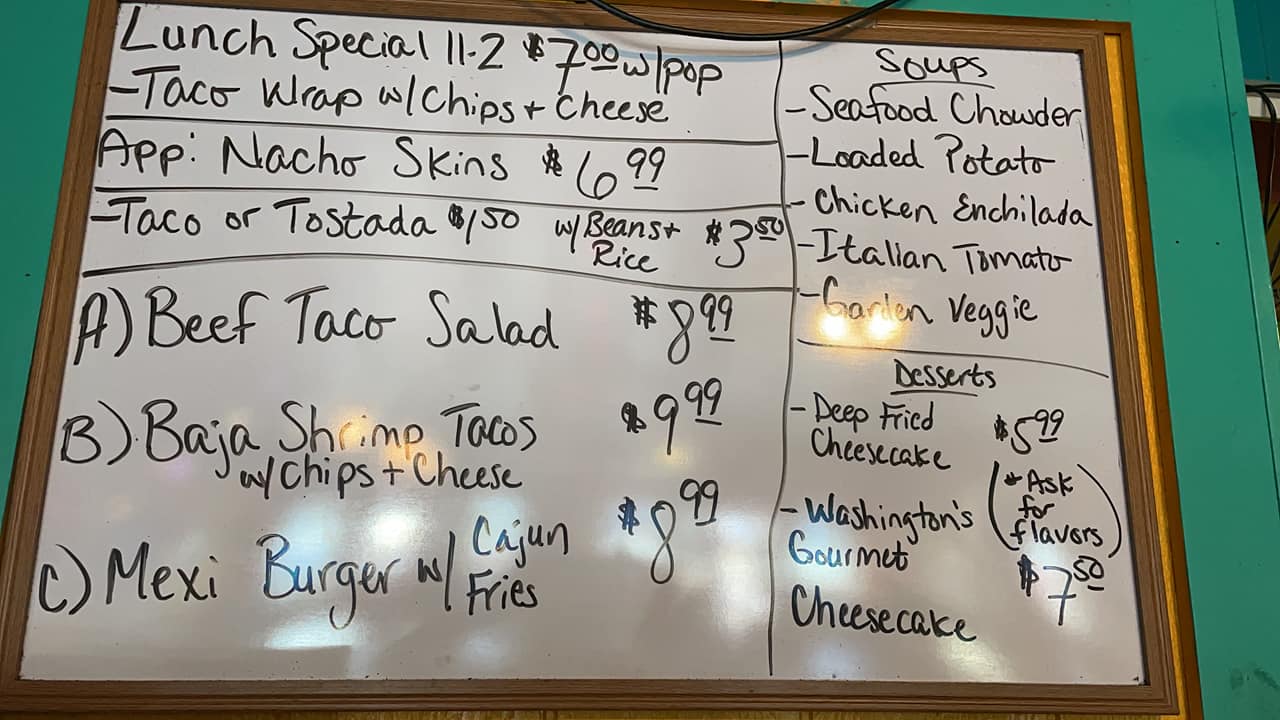 Lunch Special 11-2 $7.00 w/pop
-Taco Wrap w/Chips + Cheese
App: Nacho Skins $6.99
-Taco or Tostada $1.50 w/Beans + Rice $3.50
A) Beef Taco Salad $8.99
B) Baja Shrimp Tacos $9.99
w/Chips + Cheese
C) Mexi Burger w/ Cajun Fries $8.99
Soups
-Seafood Chowder
-Loaded Potato
-Chicken Enchilada
-Italian Tomato
-Garden Veggie
Desserts
-Deep Fried
Cheesecake $5.99
-Washington's
Gourmet
Cheesecake $7.50
(*Ask
for
flavors)